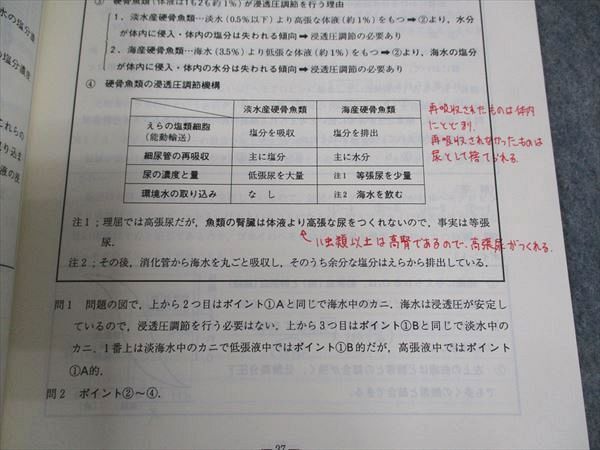 ③ 硬骨魚類（体液は1も2も約1%）が浸透圧調節を行う理由
1．淡水産硬骨魚類…淡水（0.5%以下）より高張な体液（約1%）をもつ→①より，水分
が体内に侵入・体内の塩分は失われる傾向→浸透圧調節の必要あり
2．海産硬骨魚類…海水（3.5%）より低張な体液（約1%）をもつ→②より，海水の塩分
が体内に侵入・体内の水分は失われる傾向→浸透圧調節の必要あり
④ 硬骨魚類の浸透圧調節機構
淡水産硬骨魚類 海産硬骨魚類
えらの塩類細胞
（能動輸送） 塩分を吸収 塩分を排出
細尿管の再吸収 主に塩分 主に水分
尿の濃度と量 低張尿を大量 注1 等張尿を少量
環境水の取り込み なし 注2 海水を飲む
再吸収されたものは体内
にとどまり，
再吸収されなかったものは
尿として捨てられる．
注1；理屈では高張尿だが，魚類の腎臓は体液より高張な尿をつくれないので，事実は等張
尿．
ハ虫類以上は高腎であるので，高張尿がつくれる．
注2；その後，消化管から海水を丸ごと吸収し，そのうち余分な塩分はえらから排出している．
問1 問題の図で，上から2つ目はポイント①Aと同じで海水中のカニ．海水は浸透圧が安定し
ているので，浸透圧調節を行う必要はない．上から3つ目はポイント①Bと同じで淡水中の
カニ．1番上は淡海水中のカニで低張液中ではポイント①B的だが，高張液中ではポイント
①A的．
問2 ポイント②〜④．
— 27 —